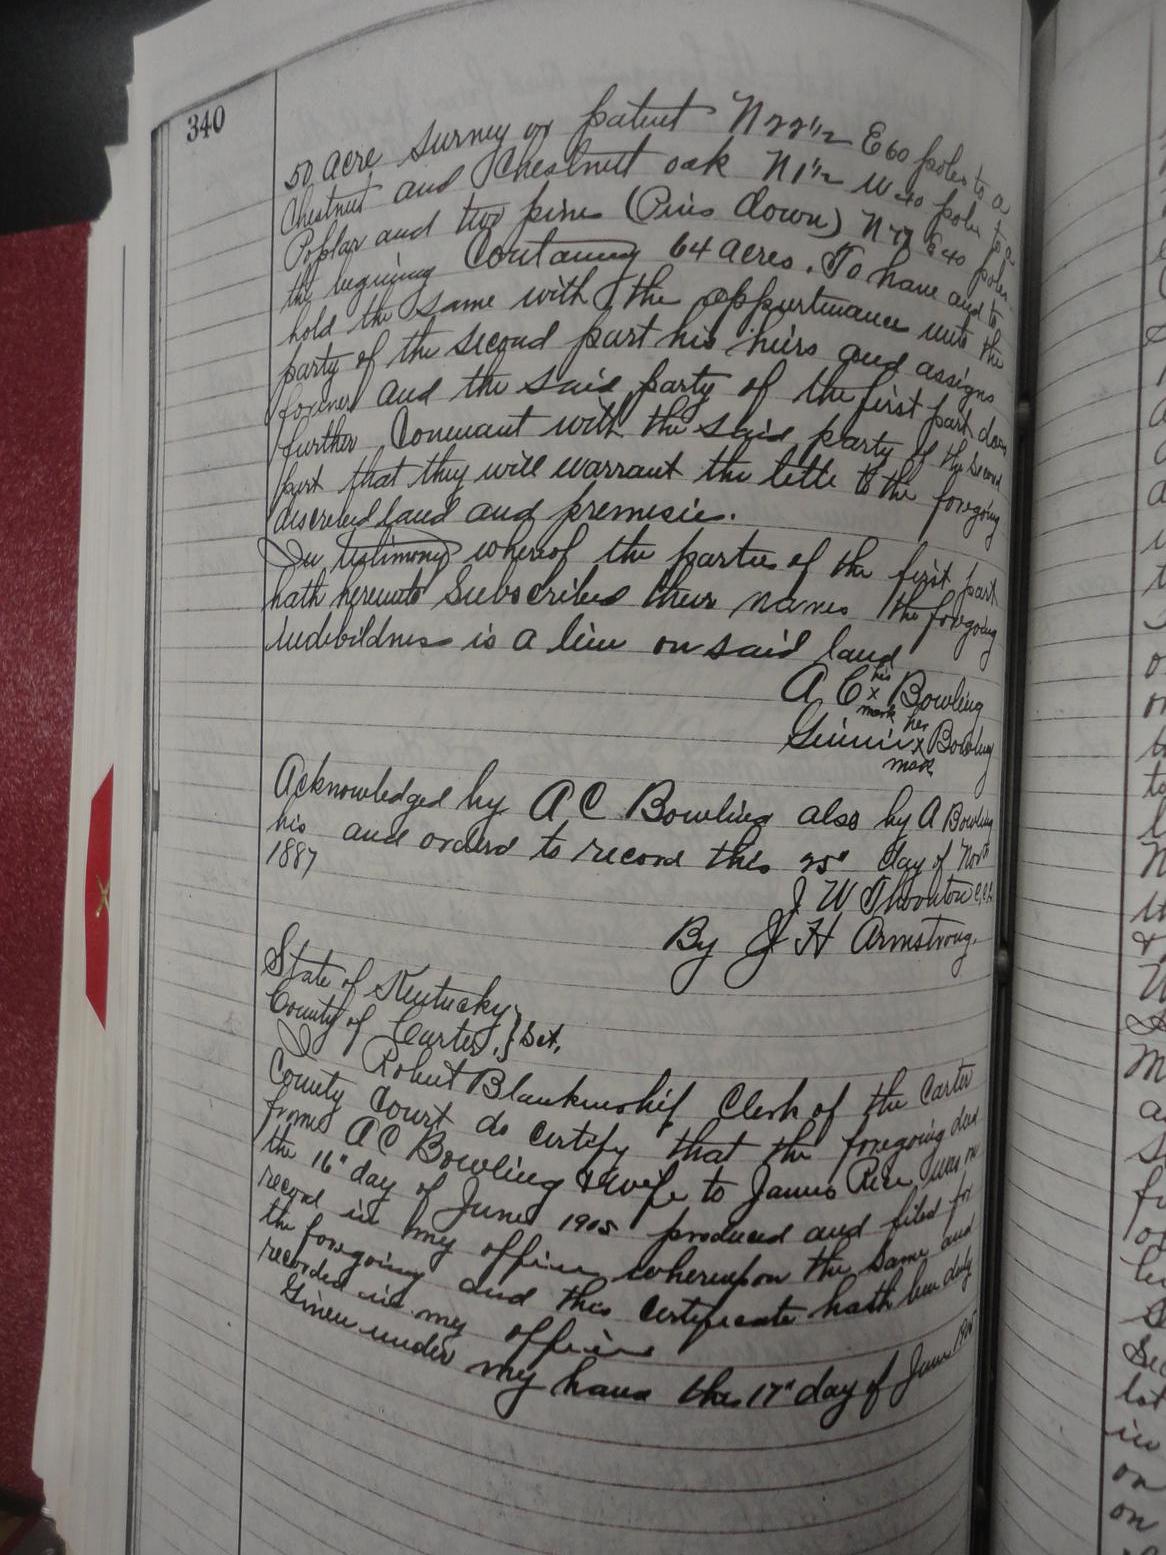 340
50 acre survey or patent N 22 1/2 E 60 poles to a
Chestnut and Chestnut oak N 1 1/2 W 40 poles to a
Poplar and two pines (Pins down) N 77 E 40 poles
the begining Containing 64 acres. To have and to
hold the same with the appurtinance unto the
party of the second part his heirs and assigns
forever and the said party of the first part does
further Convenant with the said party of the second
part that they will warrant the title to the foregoing
discribed land and premesis.
In testimony whereof the parties of the first part
hath hereunto Subscribed their names the foregoing
indebildness is a lien on said land
his
A C x Bowling
mark her
x Bowling
mark
Acknowledged by A C Bowling also by A Bowling
his and orderd to record this 25" day of Novr
1887
J W Thornton C.C.C.
By J H Armstrong.
State of Kentucky
County of Carter. } Sct.
I Robert Blankenship Clerk of the Carter
County Court do certify that the foregoing deed
from A C Bowling & wife to James Rice, was on
the 16" day of June 1905 produced and filed for
record in my office whereupon the same and
the foregoing and this certificate hath been duly
recorded in my office
Given under my hand this 17" day of June 1905